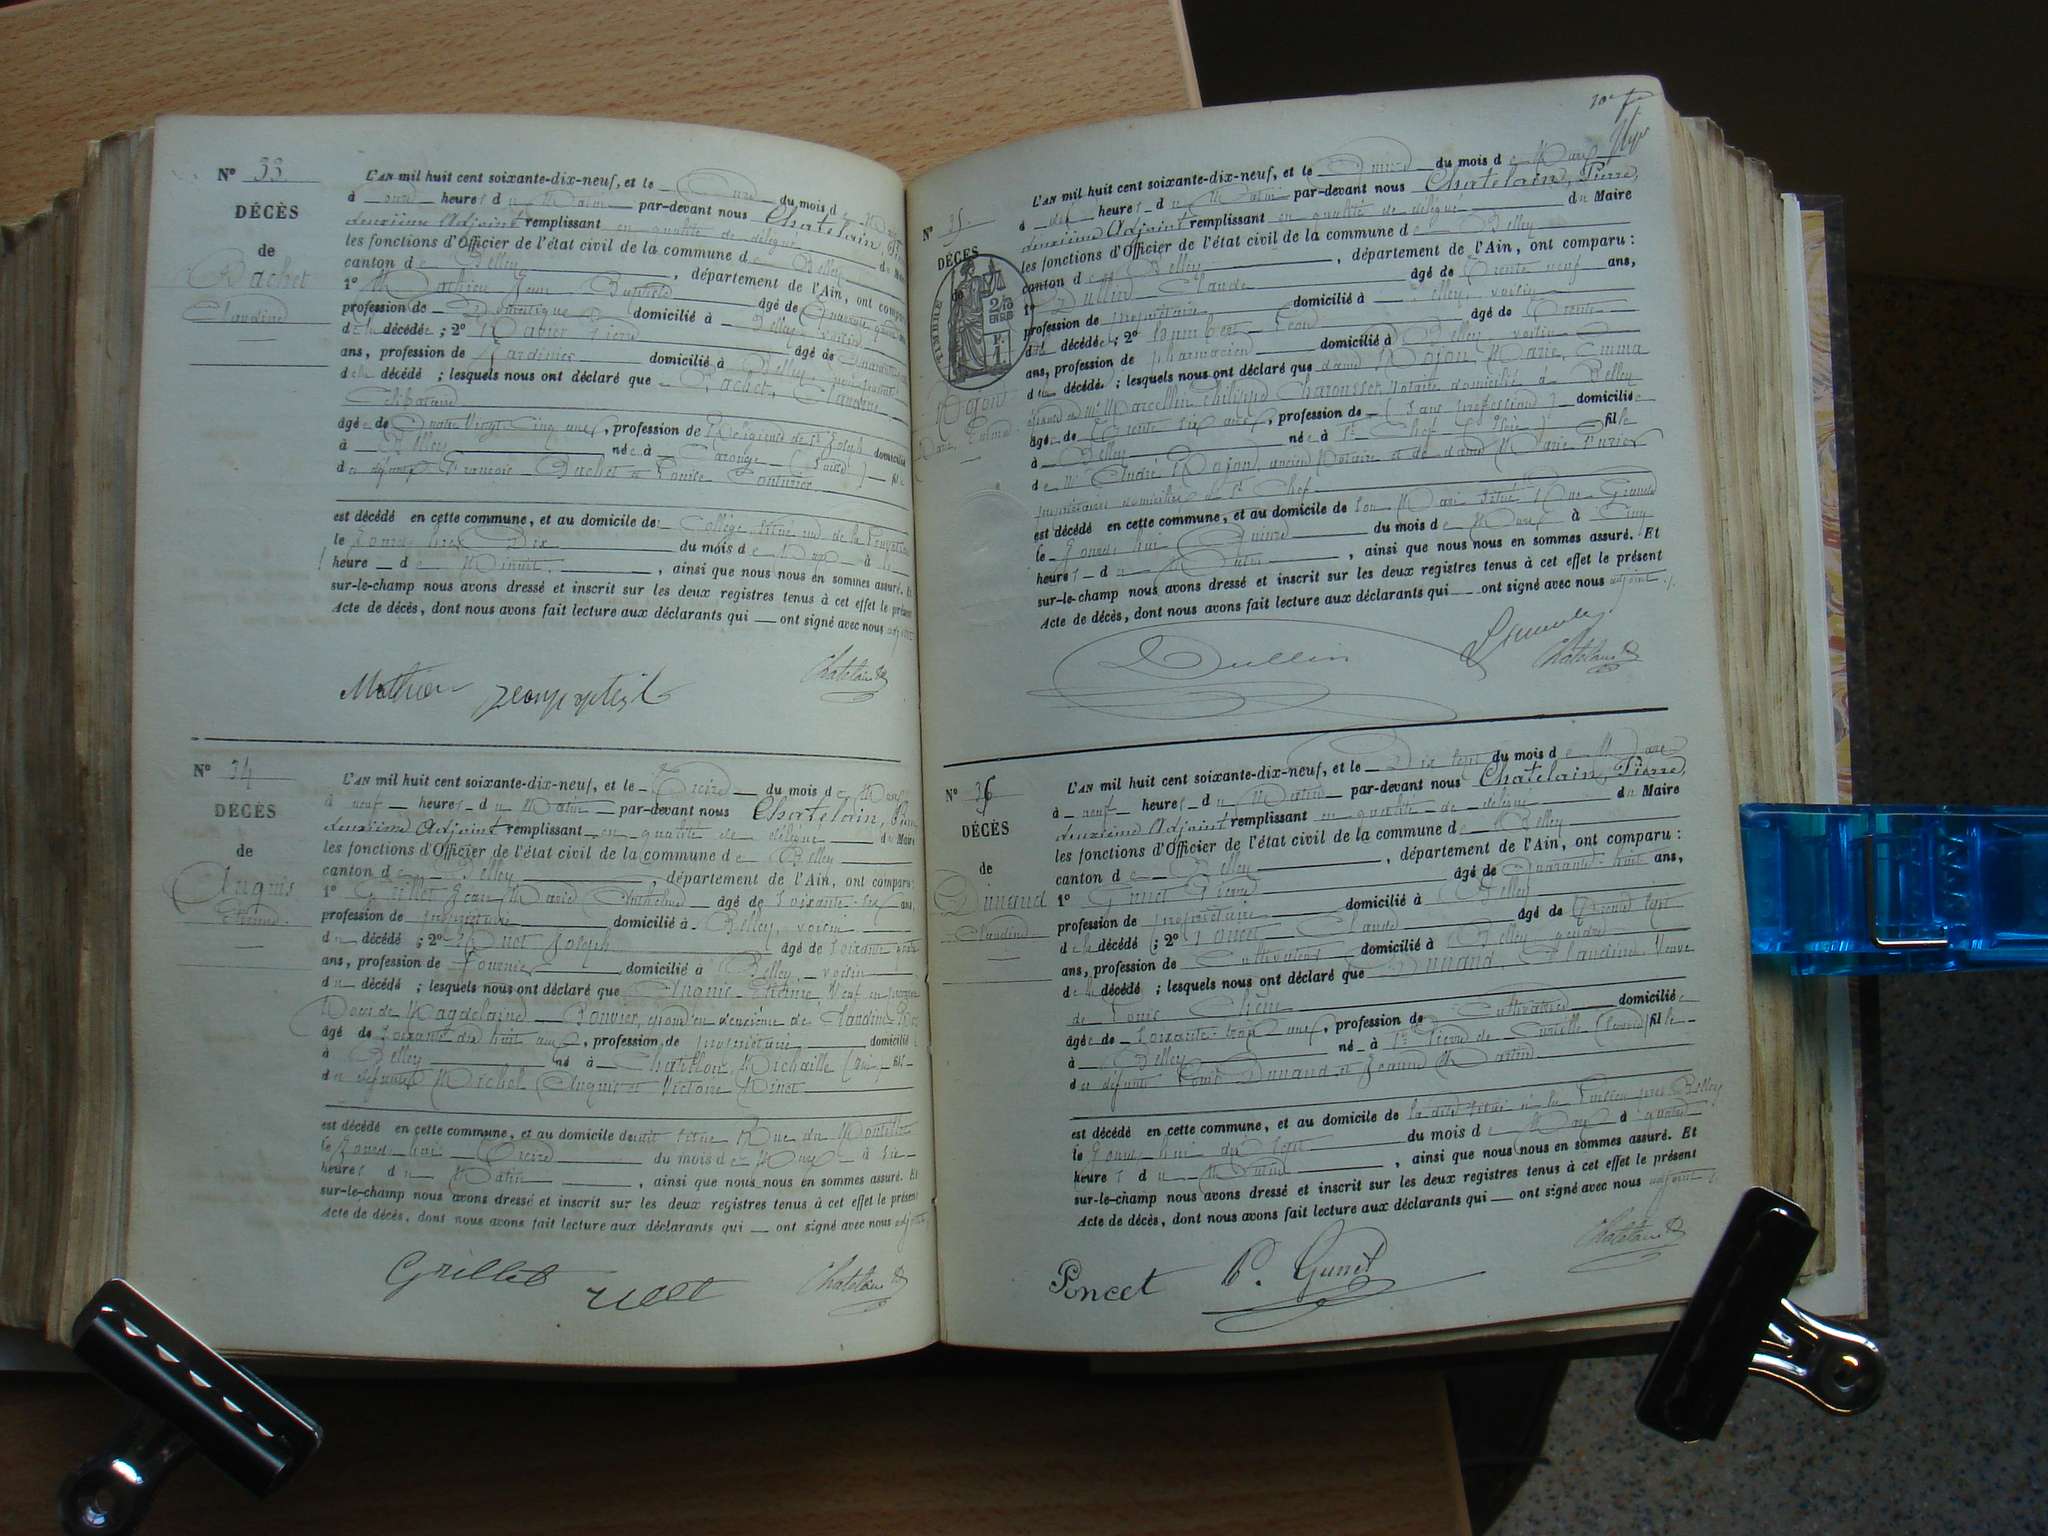 N° 33
DÉCÈS
de
Bachet
Claudine
L'AN mil huit cent soixante-dix-neuf, et le Onze du mois de
à onze heures du Matin par-devant nous Chatelain,
deuxième Adjoint remplissant en qualité de délégué du
les fonctions d'Officier de l'état civil de la commune de Belley
canton de Belley, département de l'Ain, ont
1° Mathieu Jean Baptiste âgé de
profession de Domestique domicilié à Belley, voisin
de la décédée; 2° Pierre âgé de
ans, profession de Jardinier domicilié à Belley
de la décédé ; lesquels nous ont déclaré que Bachet, Claudine
Célibataire
âgée de Quatre Vingt Cinq ans, profession de Religieuse de St Joseph domicilié
à Belley née à Carouge (Suisse) fille
de défunts François Bachet et Louise Couturier
est décédé en cette commune, et au domicile de Collège situé rue de la
le Jourd'hui Dix du mois de Mars à
heure de Minuit, ainsi que nous nous en sommes assuré. Et
sur-le-champ nous avons dressé et inscrit sur les deux registres tenus à cet effet le présent
Acte de décès, dont nous avons fait lecture aux déclarants qui ont signé avec nous adjoint
Mathieu jeanbaptiste Chatelain
N° 34
DÉCÈS
de
Auguis
Etienne
L'AN mil huit cent soixante-dix-neuf, et le Treize du mois de Mars
à neuf heures du Matin par-devant nous Chatelain,
deuxième Adjoint remplissant en qualité de délégué du Maire
les fonctions d'Officier de l'état civil de la commune de Belley
canton de Belley département de l'Ain, ont comparu :
1° Grillet Jean Marie Anthelme âgé de Soixante six ans,
profession de propriétaire domicilié à Belley, voisin
du décédé ; 2° Joseph âgé de Soixante
ans, profession de Fournier domicilié à Belley, voisin
du décédé ; lesquels nous ont déclaré que Auguis Etienne, Veuf en
Noces de Magdelaine Bouvier, époux en deuxième de Claudine
âgé de Soixante dix huit ans, profession de propriétaire domicilié
à Belley né à Chatillon Michaille (Ain) fils
de défunts Michel Auguis et Victoire
est décédé en cette commune, et au domicile de situé Rue du
le Jourd'hui Treize du mois de Mars à
heures du Matin, ainsi que nous nous en sommes assuré. Et
sur-le-champ nous avons dressé et inscrit sur les deux registres tenus à cet effet le présent
Acte de décès, dont nous avons fait lecture aux déclarants qui ont signé avec nous adjoint
Grillet Chatelain
N° 35
DÉCÈS
de
TIMBRE
Marie, Emma
L'AN mil huit cent soixante-dix-neuf, et le Quinze du mois de Mars
à dix heures du Matin par-devant nous Chatelain, Pierre,
deuxième Adjoint remplissant en qualité de délégué du Maire
les fonctions d'Officier de l'état civil de la commune de Belley
canton de Belley, département de l'Ain, ont comparu :
1° Dullin Claude âgé de Trente neuf ans,
profession de propriétaire domicilié à Belley, voisin
de la décédée ; 2° Léon âgé de Trente
ans, profession de pharmacien domicilié à Belley voisin
de la décédée ; lesquels nous ont déclaré que dame Marie, Emma
épouse de Mr Marcellin Philibert Charousset, Notaire domicilié à Belley
âgée de Trente six ans, profession de (Sans profession) domiciliée
à Belley née à St Chef (Isère) fille
de Mr André ancien Notaire et de dame Marie
propriétaires domiciliés à St Chef
est décédé en cette commune, et au domicile de son Mari situé Rue Grande
le Jourd'hui Quinze du mois de Mars à Cinq
heures du Matin, ainsi que nous nous en sommes assuré. Et
sur-le-champ nous avons dressé et inscrit sur les deux registres tenus à cet effet le présent
Acte de décès, dont nous avons fait lecture aux déclarants qui ont signé avec nous adjoint
Dullin Chatelain
N° 36
DÉCÈS
de
Dunand
Claudine
L'AN mil huit cent soixante-dix-neuf, et le Dix sept du mois de Mars
à neuf heures du Matin par-devant nous Chatelain, Pierre,
deuxième Adjoint remplissant en qualité de délégué du Maire
les fonctions d'Officier de l'état civil de la commune de Belley
canton de Belley, département de l'Ain, ont comparu :
1° Gunet Pierre âgé de Quarante huit ans,
profession de propriétaire domicilié à Belley
de la décédé ; 2° Poncet Claude âgé de Trente sept
ans, profession de Cultivateur domicilié à Belley gendre
de la décédé ; lesquels nous ont déclaré que Dunand, Claudine Veuve
de Louis
âgée de Soixante trois ans, profession de Cultivatrice domiciliée
à Belley né à St Pierre de Curtille (Savoie) fille
de défunts Dunand et Jeanne Martin
est décédé en cette commune, et au domicile de près Belley
le Jourd'hui dix sept du mois de Mars à quatre
heures du Matin, ainsi que nous nous en sommes assuré. Et
sur-le-champ nous avons dressé et inscrit sur les deux registres tenus à cet effet le présent
Acte de décès, dont nous avons fait lecture aux déclarants qui ont signé avec nous adjoint
Poncet P. Gunet Chatelain